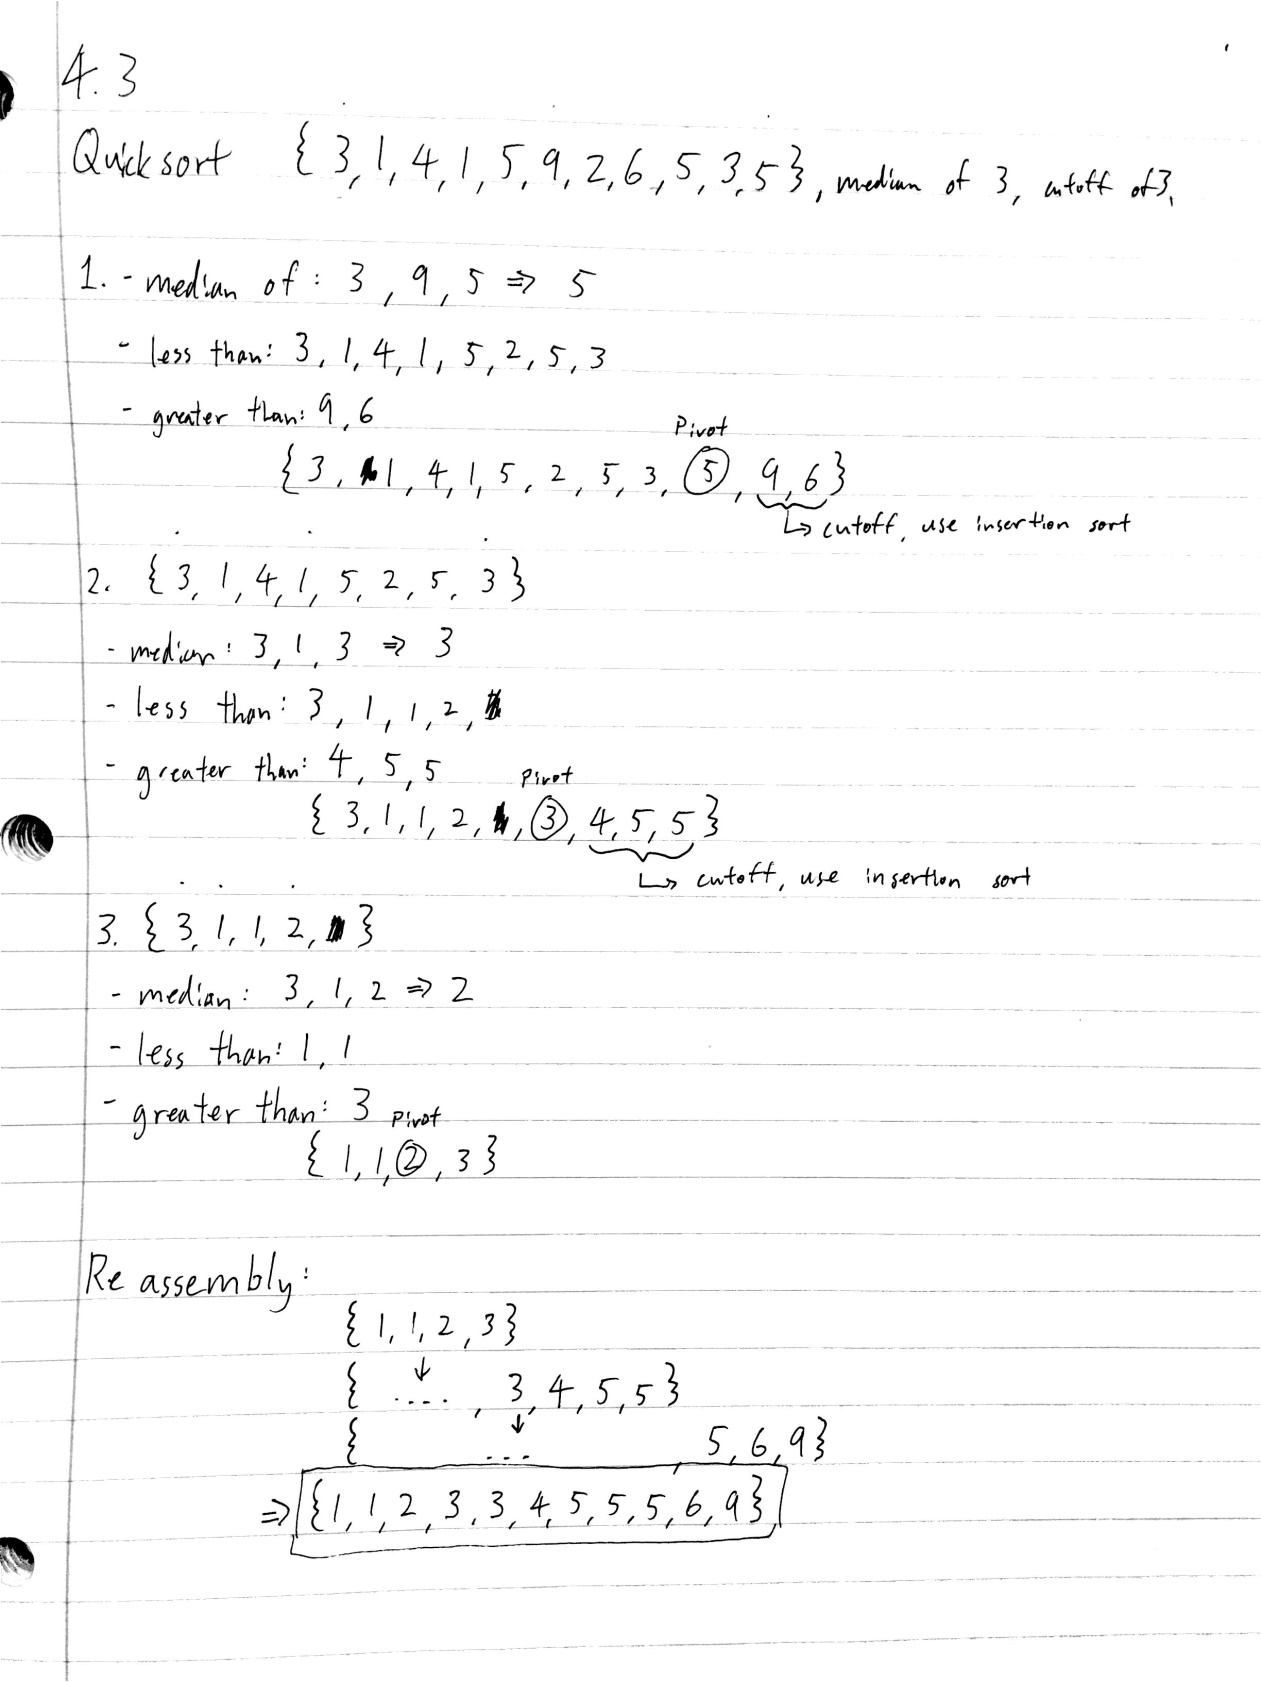 4.3
Quicksort { 3, 1, 4, 1, 5, 9, 2, 6, 5, 3, 5 }, median of 3, cutoff of 3,
1. - median of : 3, 9, 5 ⇒ 5
- less than: 3, 1, 4, 1, 5, 2, 5, 3
- greater than: 9, 6
Pivot
{ 3, 1, 4, 1, 5, 2, 5, 3, 5, 9, 6 }
↳ cutoff, use insertion sort
2. { 3, 1, 4, 1, 5, 2, 5, 3 }
- median: 3, 1, 3 ⇒ 3
- less than: 3, 1, 1, 2,
- greater than: 4, 5, 5
Pivot
{ 3, 1, 1, 2, , 3, 4, 5, 5 }
↳ cutoff, use insertion sort
3. { 3, 1, 1, 2, }
- median: 3, 1, 2 ⇒ 2
- less than: 1, 1
- greater than: 3
Pivot
{ 1, 1, 2, 3 }
Re assembly:
{ 1, 1, 2, 3 }
↓
{ ...., 3, 4, 5, 5 }
↓
{ ... , 5, 6, 9 }
⇒ { 1, 1, 2, 3, 3, 4, 5, 5, 5, 6, 9 }